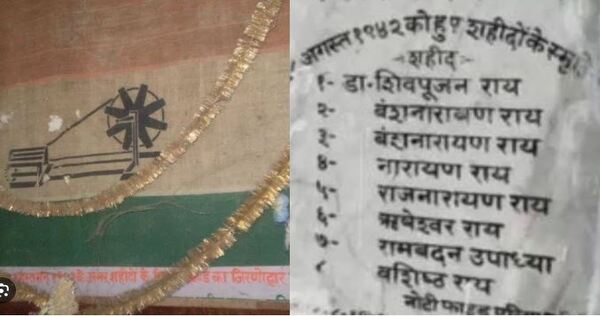 अगस्त १९४२ को हुए शहीदों के
शहीद
१- डा॰ शिवपूजन राय
२- वंशनारायण राय
३- वंशनारायण राय
४- नारायण राय
५- राजनारायण राय
६- ऋषेश्वर राय
७- रामबदन उपाध्या
८ वशिष्ठ राय
नोटीफाइड
१९४२ के अमर शहीदों के का जिर्णोद्वार